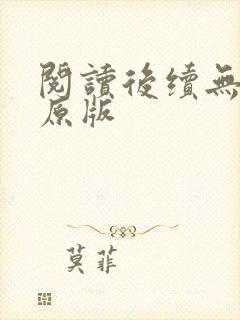 閱讀後續無
原版
莫菲